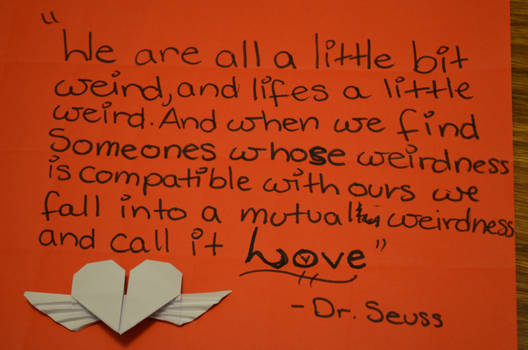 "We are all a little bit
weird, and lifes a little
weird. And when we find
Someones whose weirdness
is compatible with ours we
fall into a mutual weirdness
and call it Love"
- Dr. Seuss